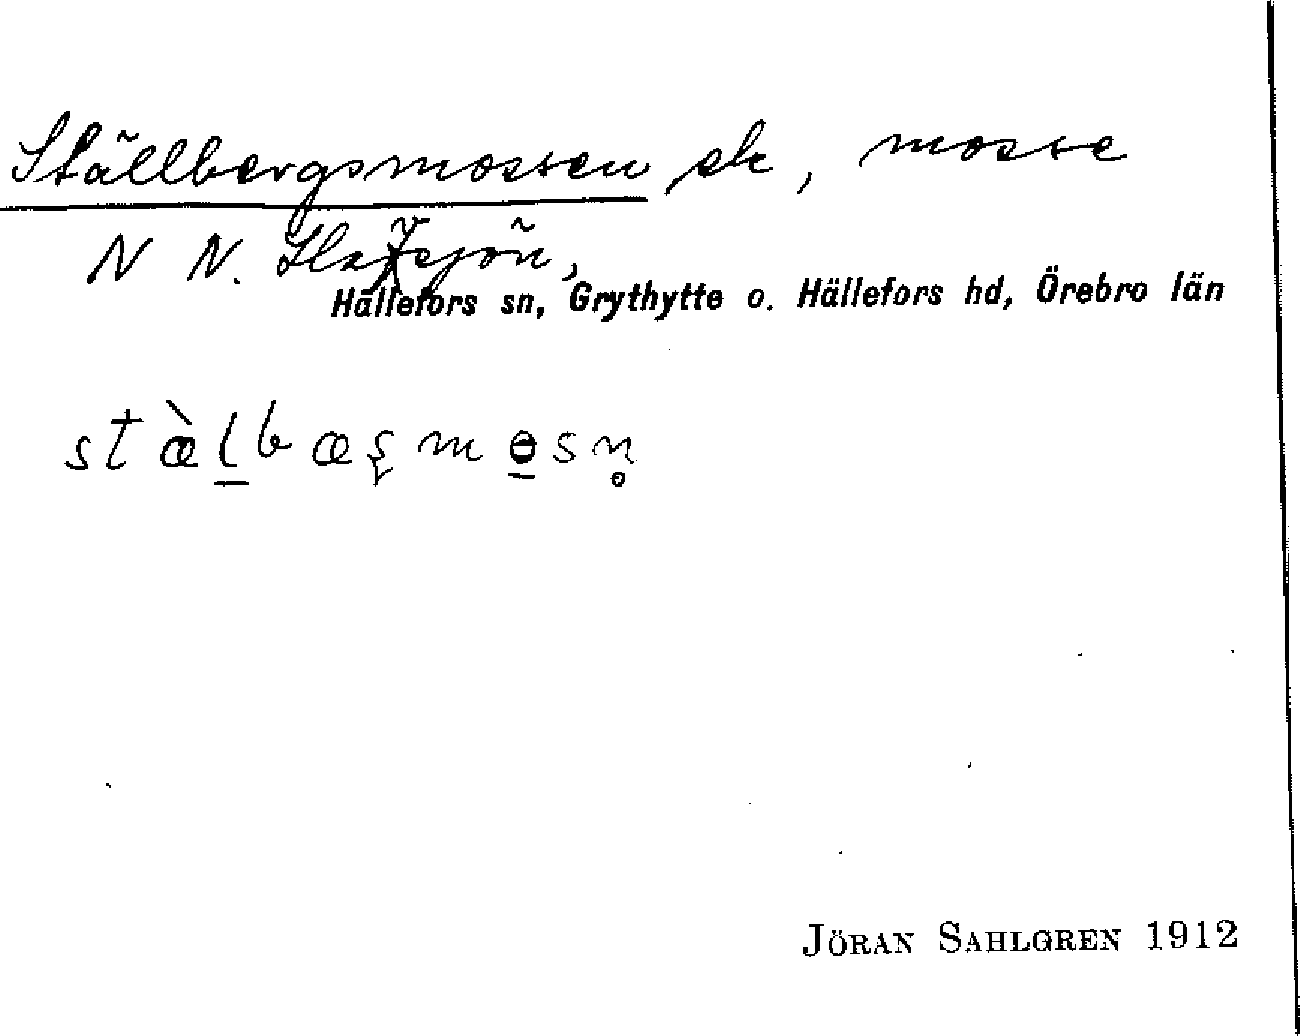 Ställbergsmossen sk, mosse
N N.
Hällefors sn, Grythytte o. Hällefors hd, Örebro län
stæ̀l̠bæşmɵ̠sn̥
JÖRAN SAHLGREN 1912